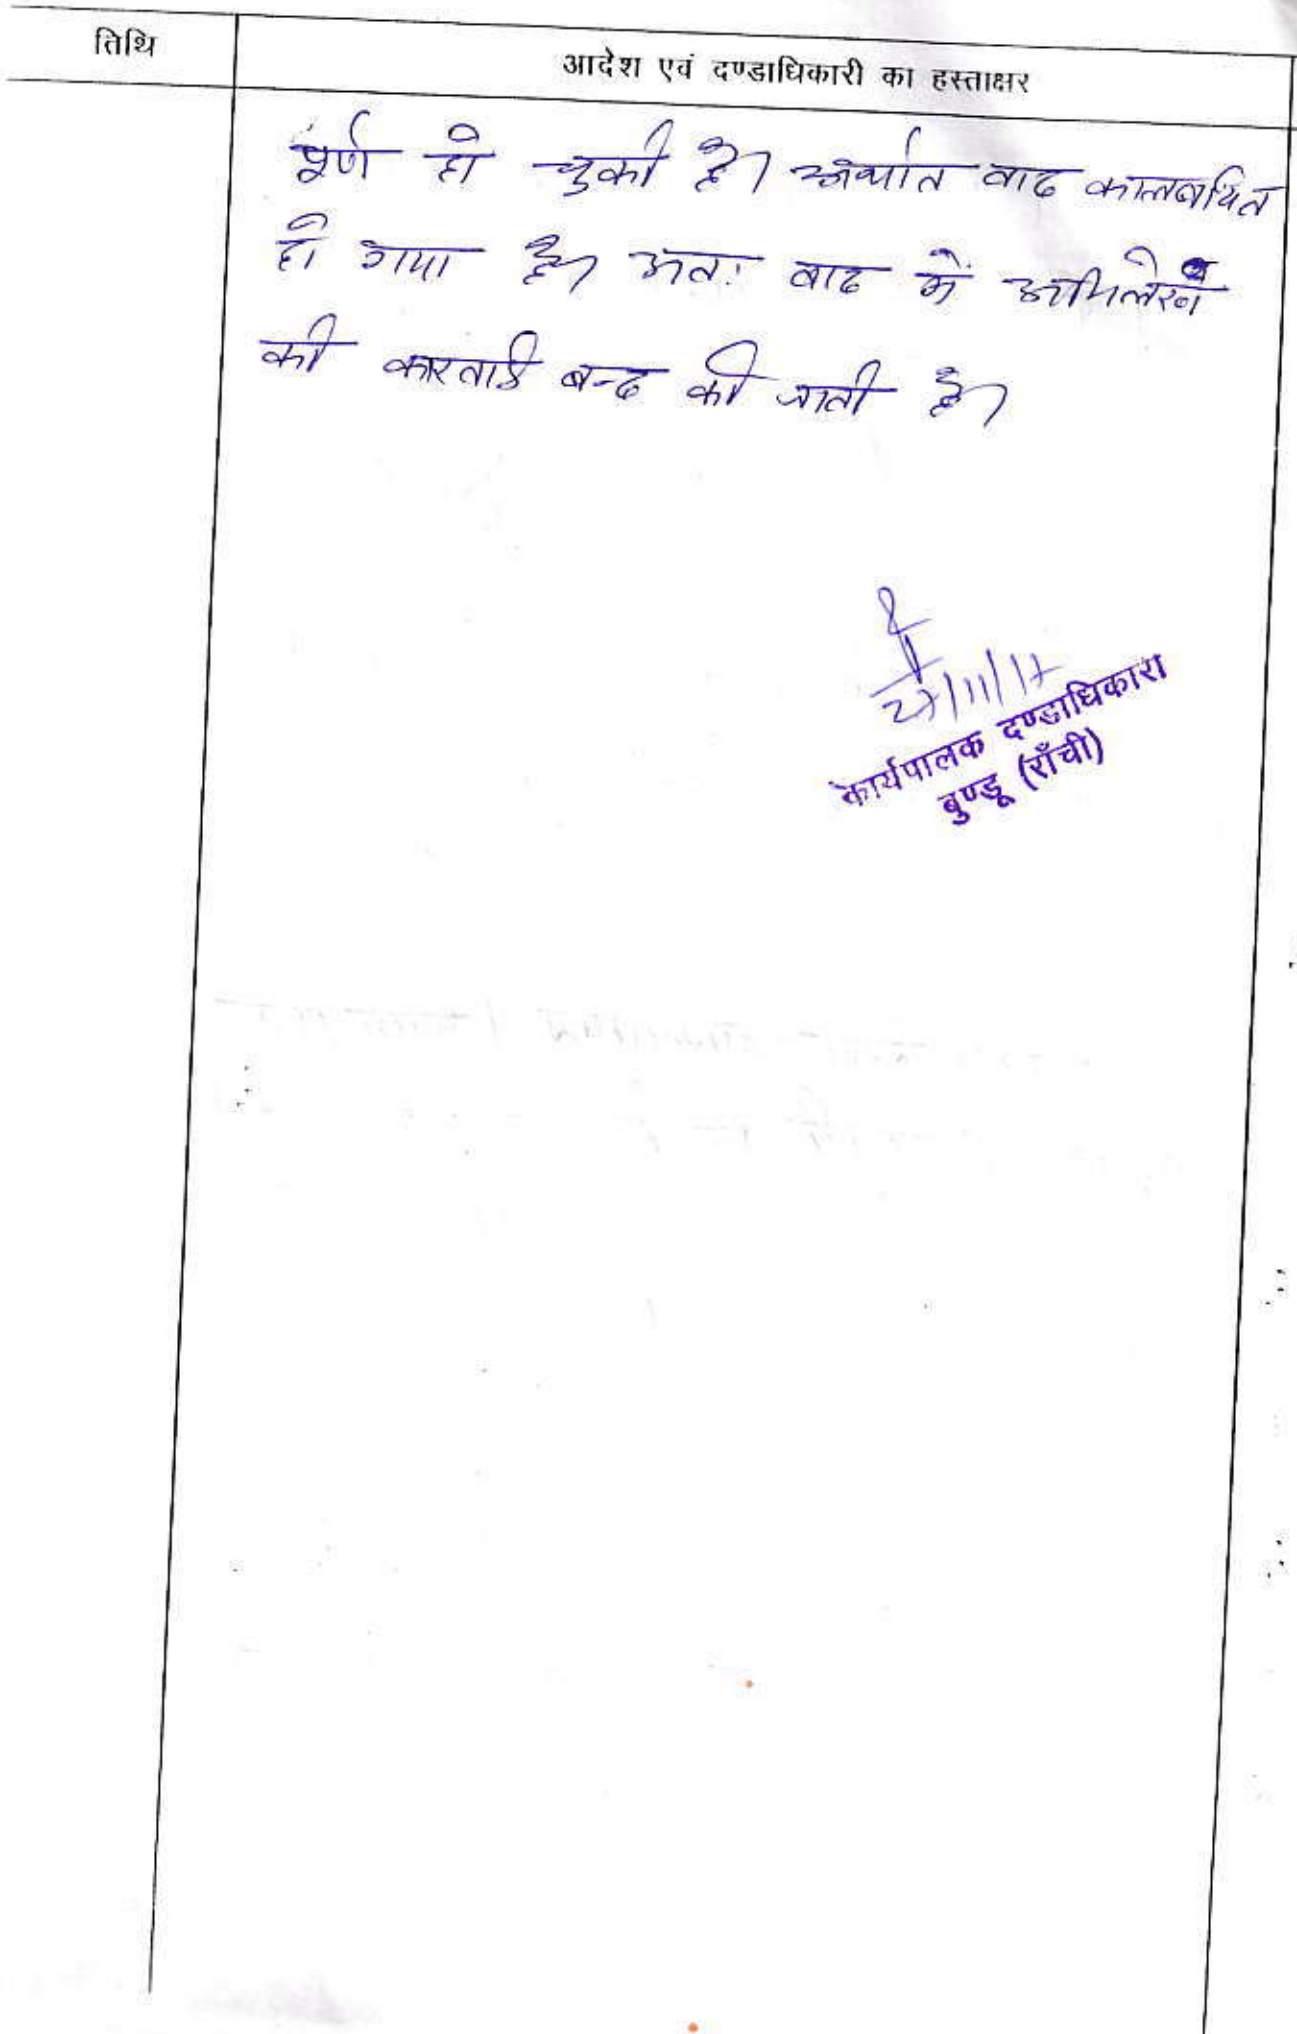 तिथि
आदेश एवं दण्डाधिकारी का हस्ताक्षर
पूर्ण हो चुकी है। अर्थात वाद कालबाधित
हो गया है। अतः वाद में अभिलेख
की कारवाई बन्द की जाती है।
27/11/17
कार्यपालक दण्डाधिकारी
बुण्डू (राँची)